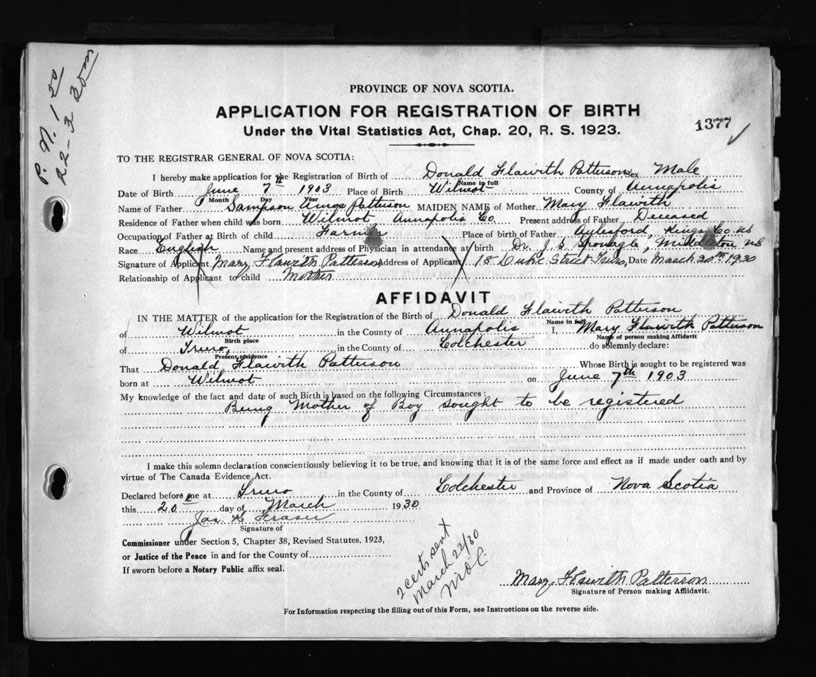 P. N. 1 50
22-3-30
PROVINCE OF NOVA SCOTIA.
APPLICATION FOR REGISTRATION OF BIRTH
Under the Vital Statistics Act, Chap. 20, R. S. 1923.
1377 ✓
TO THE REGISTRAR GENERAL OF NOVA SCOTIA:
I hereby make application for the Registration of Birth of Donald Flawith Patterson Sex Male
Name in full
Date of Birth June 7th 1903 Place of Birth Wilmot County of Annapolis
Month Day Year
Name of Father Sampson Amos Patterson MAIDEN NAME of Mother Mary Flawith
Residence of Father when child was born Wilmot Annapolis Co. Present address of Father Deceased
Occupation of Father at Birth of child Farmer Place of birth of Father Aylesford, Kings Co. NS
Race English Name and present address of Physician in attendance at birth Dr. J. A. Sponagle, Middleton NS
Signature of Applicant Mary Flawith Patterson Address of Applicant 18 Duke Street Truro, Date March 20th 1930
Relationship of Applicant to child Mother
AFFIDAVIT
IN THE MATTER of the application for the Registration of the Birth of Donald Flawith Patterson
Name in full
of Wilmot in the County of Annapolis I, Mary Flawith Patterson
Birth place Name of person making Affidavit
of Truro, in the County of Colchester do solemnly declare:
Present residence
That Donald Flawith Patterson Whose Birth is sought to be registered was
born at Wilmot on June 7th 1903
My knowledge of the fact and date of such Birth is based on the following Circumstances:
Being Mother of Boy sought to be registered
I make this solemn declaration conscientiously believing it to be true, and knowing that it is of the same force and effect as if made under oath and by
virtue of The Canada Evidence Act.
Declared before me at Truro in the County of Colchester and Province of Nova Scotia
this 20th day of March 1930
Jas Fraser
Signature of
Commissioner under Section 5, Chapter 38, Revised Statutes, 1923,
or Justice of the Peace in and for the County of
If sworn before a Notary Public affix seal.
2 certs sent
March 22/30
Mary Flawith Patterson
Signature of Person making Affidavit.
For Information respecting the filling out of this Form, see Instructions on the reverse side.